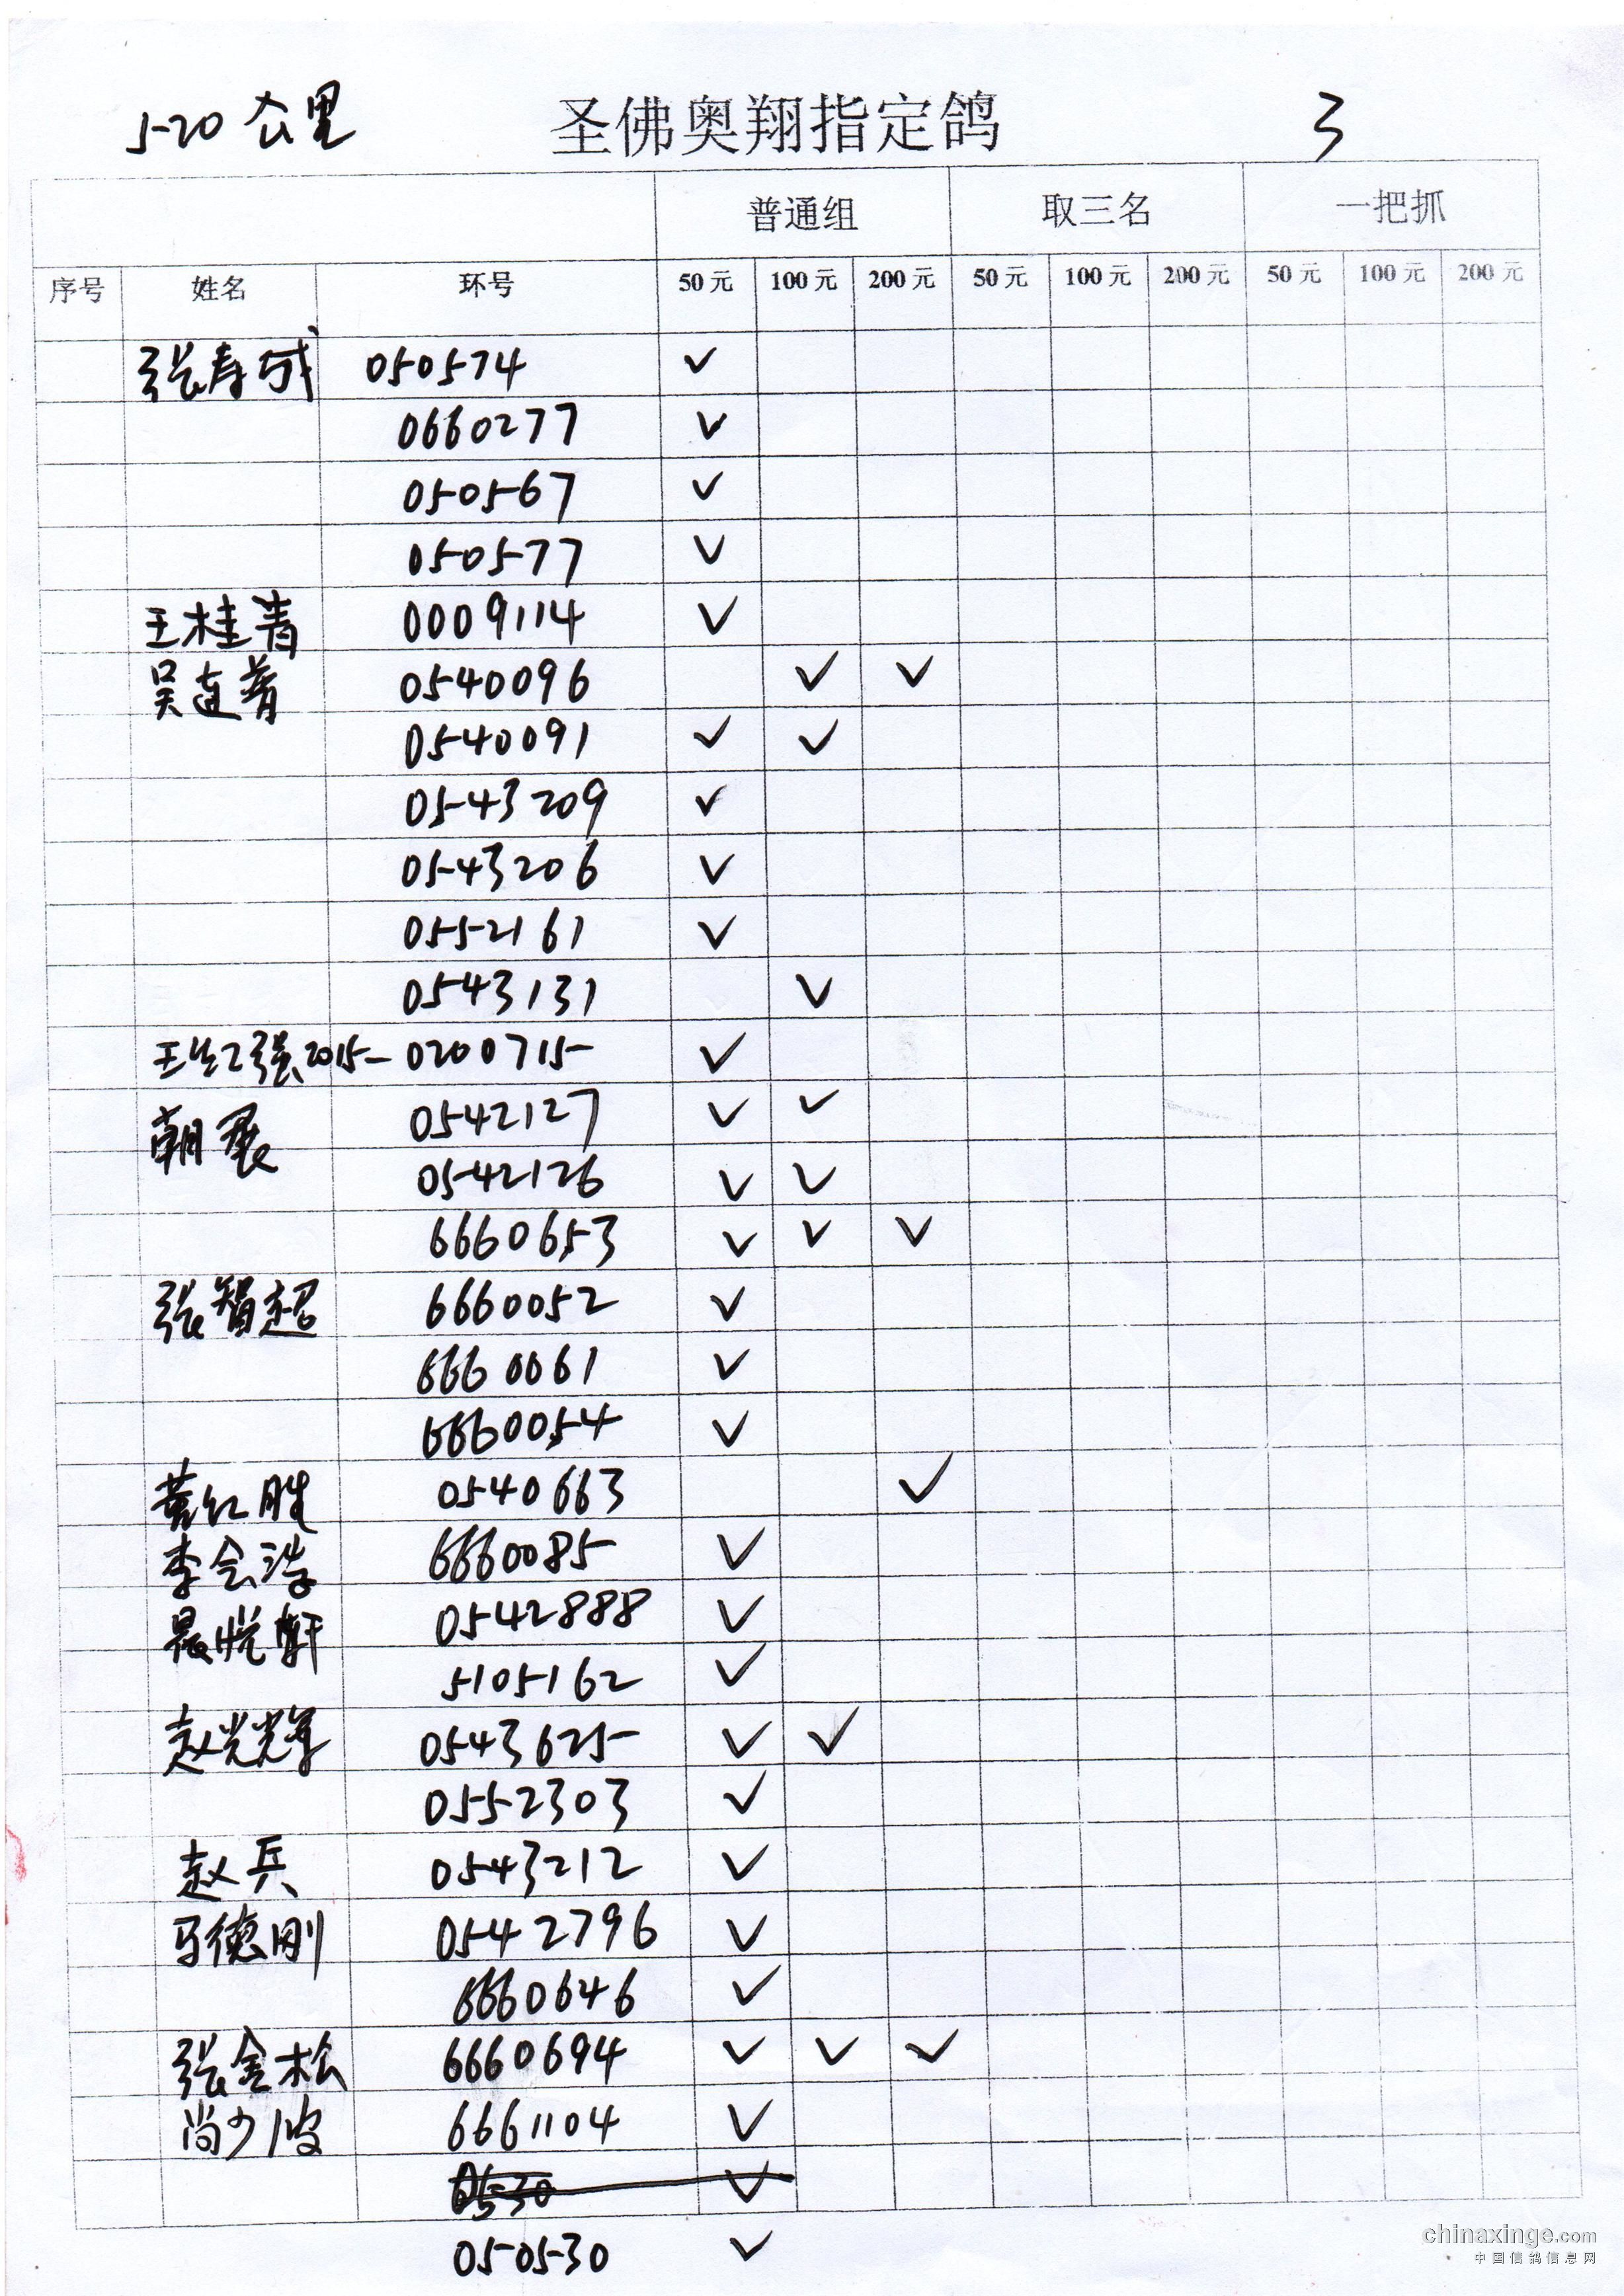 520公里 圣佛奥翔指定鸽 3
普通组 取三名 一把抓
序号 姓名 环号 50元 100元 200元 50元 100元 200元 50元 100元 200元
张寿成 050574 ✓
0660277 ✓
050567 ✓
050577 ✓
王桂青 0009114 ✓
吴连菁 0540096 ✓ ✓
0540091 ✓ ✓
0543209 ✓
0543206 ✓
0552161 ✓
0543131 ✓
2015-0200715 ✓
朝展 0542127 ✓ ✓
0542126 ✓ ✓
6660653 ✓ ✓ ✓
张智超 6660052 ✓
6660061 ✓
6660054 ✓
黄红胜 0540663 ✓
李会涛 6660085 ✓
晨悦轩 0542888 ✓
5105162 ✓
赵光辉 0543625 ✓ ✓
0552303 ✓
赵兵 0543212 ✓
马德刚 0542796 ✓
6660646 ✓
张金松 6660694 ✓ ✓ ✓
尚少波 6661104 ✓
0530 ✓
050530 ✓
chinaxinge.com
中国信鸽信息网